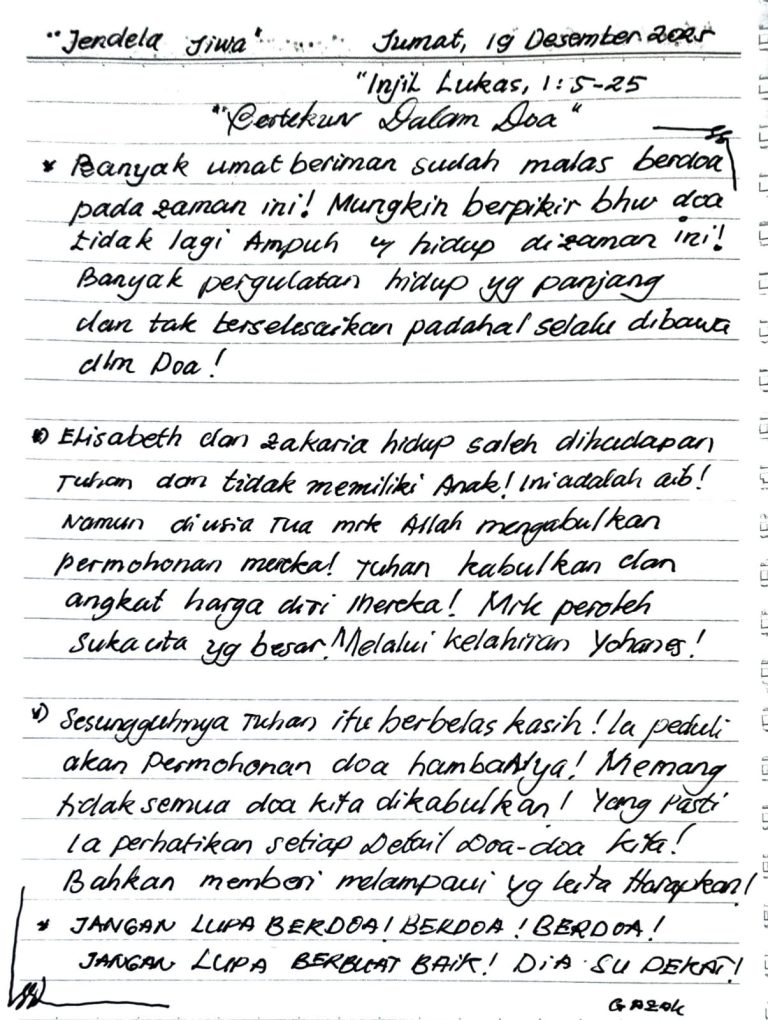 "Jendela Jiwa" Jumat, 19 Desember 2025
"Injil Lukas, 1:5-25
"Bertekun Dalam Doa"
* Banyak umat beriman sudah malas berdoa
pada zaman ini! Mungkin berpikir bhw doa
tidak lagi Ampuh hidup dizaman ini!
Banyak pergulatan hidup yg panjang
dan tak terselesaikan padahal selalu dibawa
dlm Doa!
*) Elisabeth dan Zakaria hidup saleh dihadapan
Tuhan dan tidak memiliki Anak! Ini adalah aib!
Namun diusia Tua mrk Allah mengabulkan
permohonan mereka! Tuhan kabulkan dan
angkat harga diri Mereka! Mrk peroleh
sukacita yg besar! Melalui kelahiran Yohanes!
*) Sesungguhnya Tuhan itu berbelas kasih! Ia peduli
akan Permohonan doa hambaNya! Memang
tidak semua doa kita dikabulkan! Yang Pasti
Ia perhatikan setiap Detail Doa-doa kita!
Bahkan memberi melampaui yg kita Harapkan!
* JANGAN LUPA BERDOA! BERDOA! BERDOA!
JANGAN LUPA BERBUAT BAIK! DIA SU DEKAT!